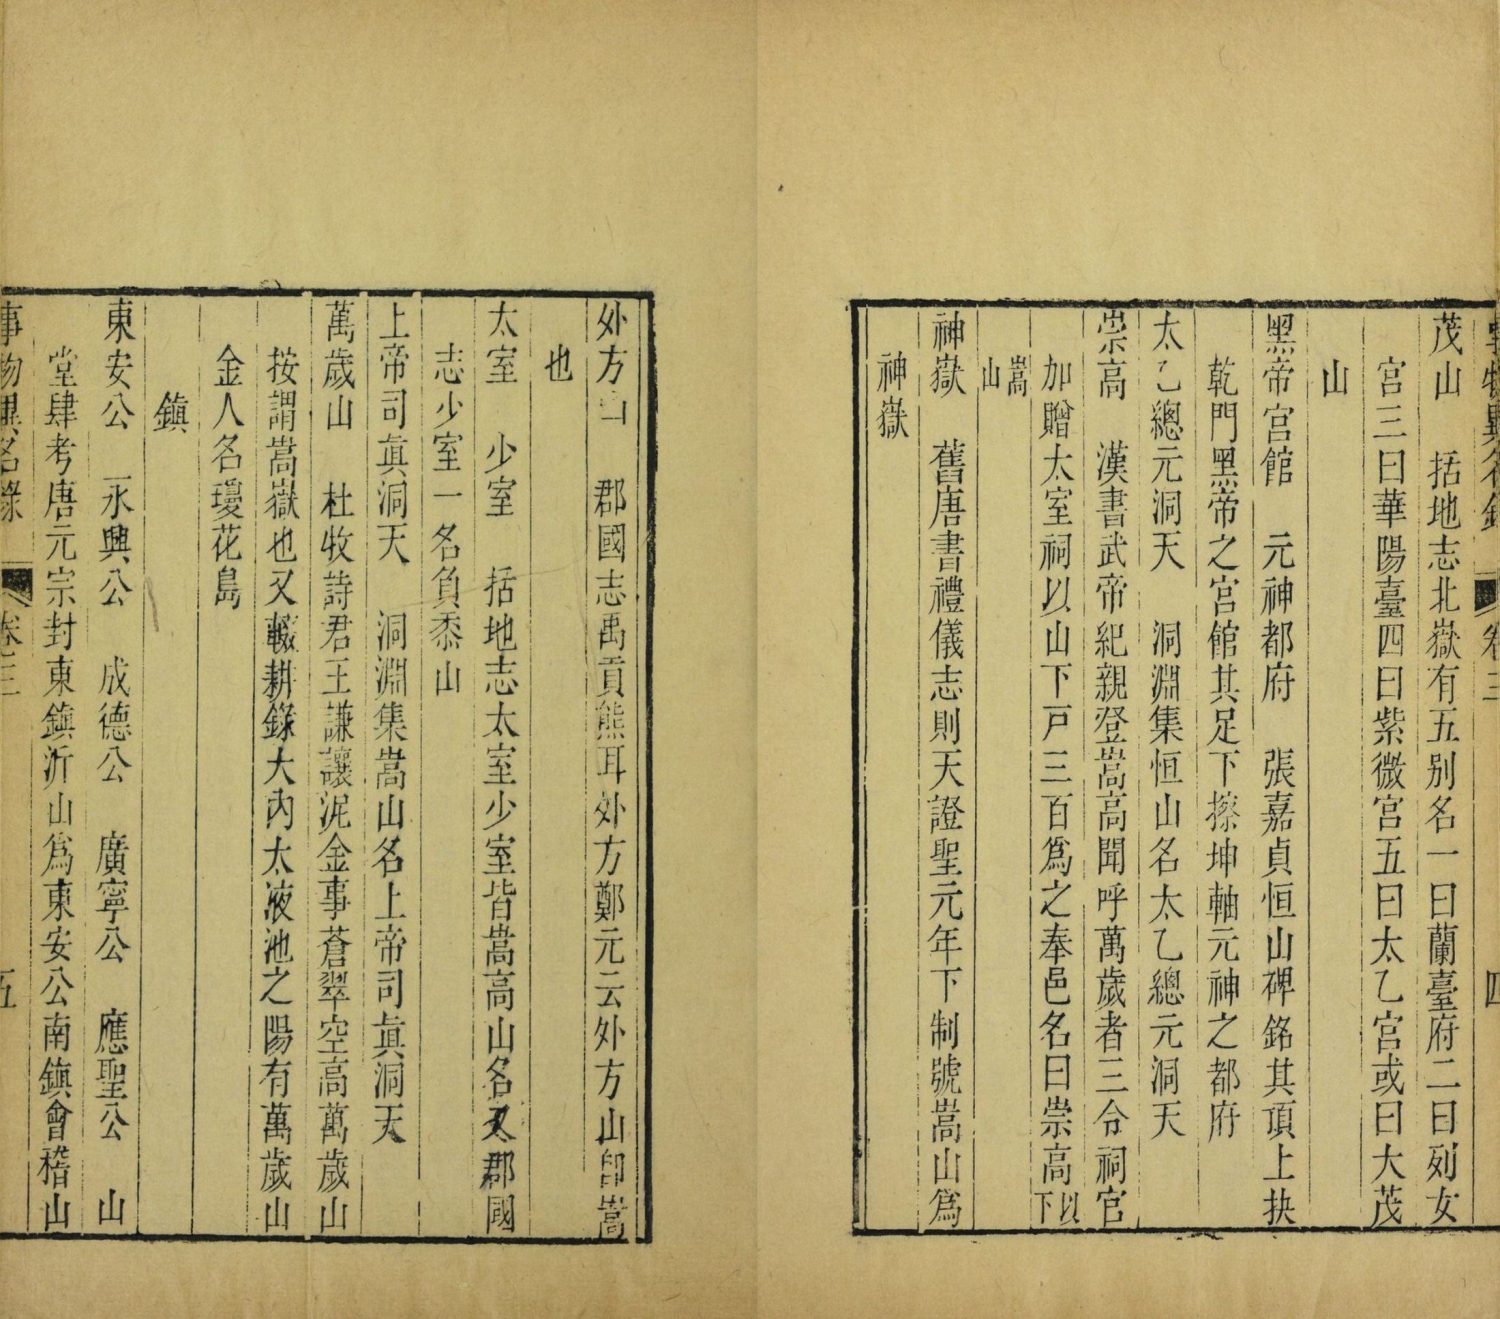 事物異名錄 卷三 四
茂山 括地志北嶽有五别名一曰蘭臺府二曰列女
宮三曰華陽臺四曰紫微宮五曰太乙宮或曰大茂
山
黑帝宮館 元神都府 張嘉貞恒山碑銘其頂上抉
乾門黑帝之宮館其足下捺坤軸元神之都府
太乙總元洞天 洞淵集恒山名太乙總元洞天
崇高 漢書武帝紀親登嵩高聞呼萬歲者三令祠官
加贈太室祠以山下戸三百爲之奉邑名曰崇高以下
嵩山
神嶽 舊唐書禮儀志則天證聖元年下制號嵩山爲
神嶽
外方山 郡國志禹貢熊耳外方鄭元云外方山卽嵩
也
太室 少室 括地志太室少室皆嵩高山名又郡國
志少室一名負黍山
上帝司眞洞天 洞淵集嵩山名上帝司眞洞天
萬歲山 杜牧詩君王謙讓泥金事蒼翠空高萬歲山
按謂嵩嶽也又輟耕錄大內太液池之陽有萬歲山
金人名瓊花島
鎮
東安公 永興公 成德公 廣寧公 應聖公 山
堂肆考唐元宗封東鎮沂山爲東安公南鎮會稽山
事物異名錄 卷三 五